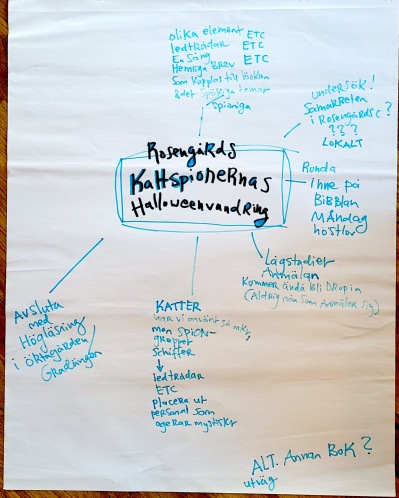 olika element ETC
ledtrådar ETC
En sång ETC
Hemliga Brev
som kopplas till Boken
& det spökiga temat
Spioniga
undersök!
Samarbeten
i Rosengårds C?
???
LOKALT
Rosengårds
Kattspionernas
Halloweenvandring
Runda
inne på
BiBBlan
Måndag
höstlov
Lågstadiet
Anmälan
Kommer ändå bli DROPin
(Aldrig nån som Anmäler sig)
Avsluta
med
Högläsning
i
Gradängen
KATTER
har vi använt så mkt,
men SPION-
grepper
Schiffer
ledtrådar
ETC
placera ut
personal som
agerar mystiskt
ALT. Annan BoK?
utväg